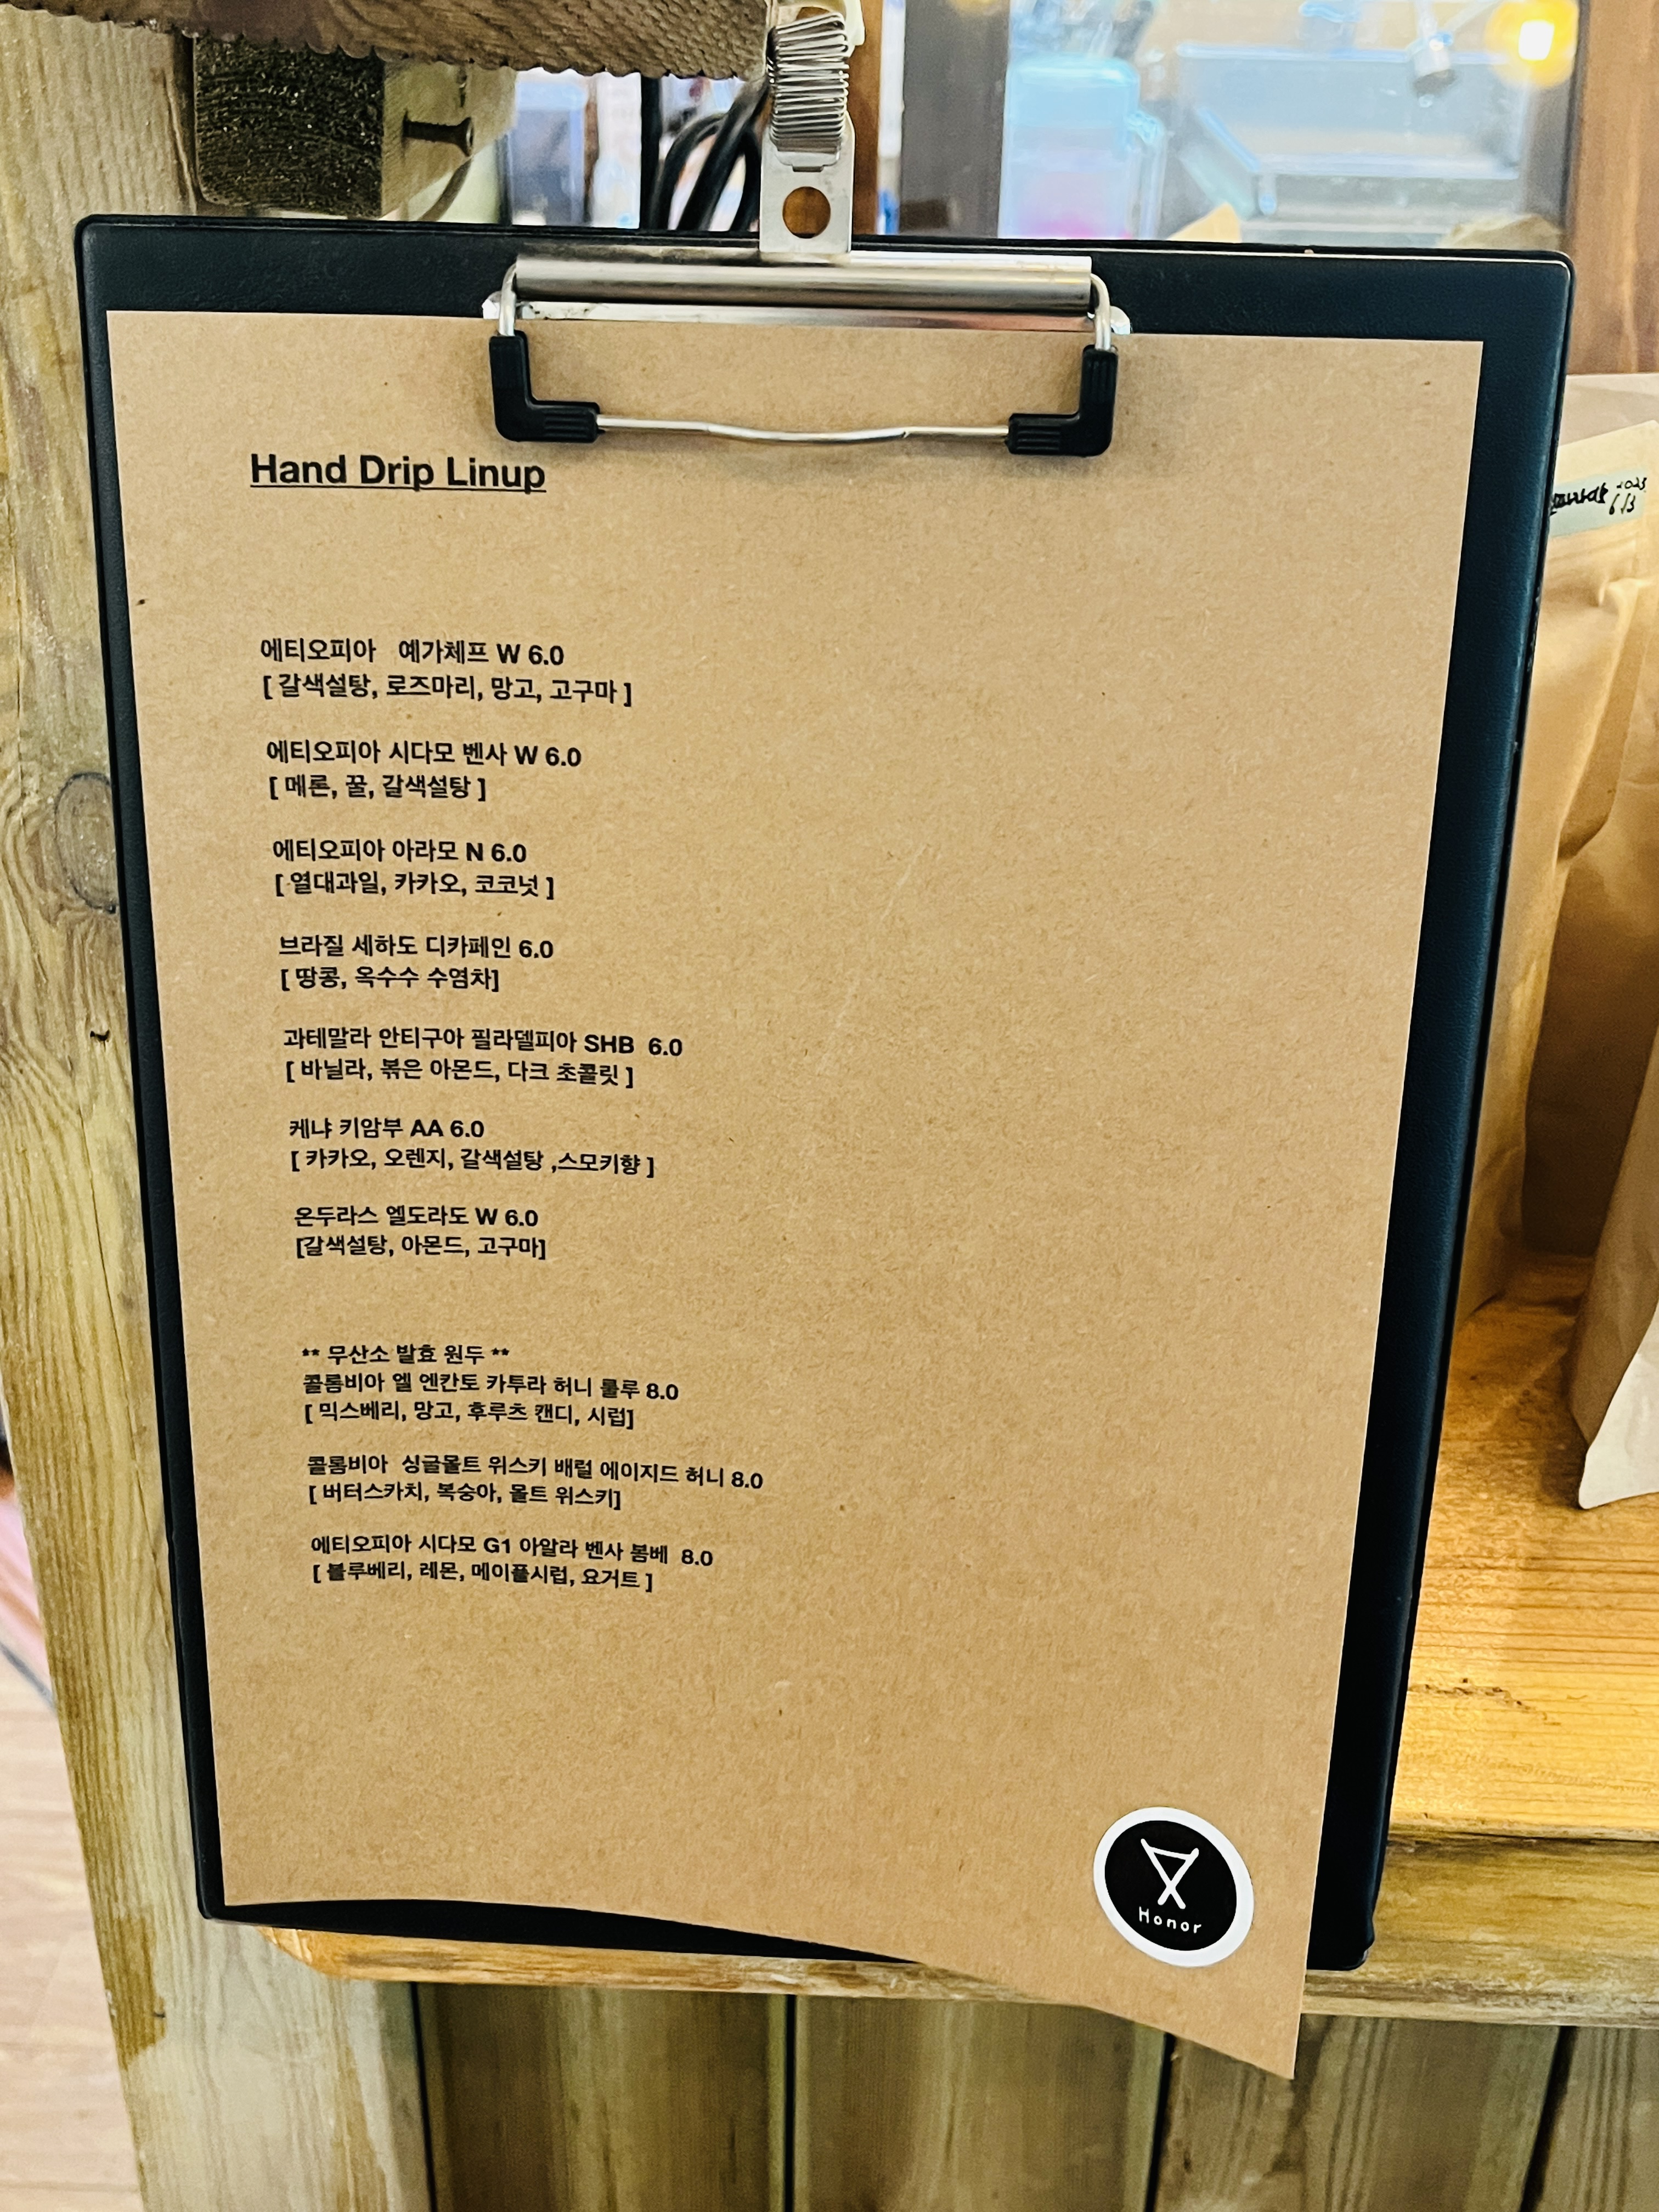 Hand Drip Linup
에티오피아 예가체프 W 6.0
[ 갈색설탕, 로즈마리, 망고, 고구마 ]
에티오피아 시다모 벤사 W 6.0
[ 메론, 꿀, 갈색설탕 ]
에티오피아 아라모 N 6.0
[ 열대과일, 카카오, 코코넛 ]
브라질 세하도 디카페인 6.0
[ 땅콩, 옥수수 수염차]
과테말라 안티구아 필라델피아 SHB 6.0
[ 바닐라, 볶은 아몬드, 다크 초콜릿 ]
케냐 키암부 AA 6.0
[ 카카오, 오렌지, 갈색설탕 ,스모키향 ]
온두라스 엘도라도 W 6.0
[갈색설탕, 아몬드, 고구마]
** 무산소 발효 원두 **
콜롬비아 엘 엔칸토 카투라 허니 룰루 8.0
[ 믹스베리, 망고, 후루츠 캔디, 시럽]
콜롬비아 싱글몰트 위스키 배럴 에이지드 허니 8.0
[ 버터스카치, 복숭아, 몰트 위스키]
에티오피아 시다모 G1 아알라 벤사 봄베 8.0
[ 블루베리, 레몬, 메이플시럽, 요거트 ]
Honor